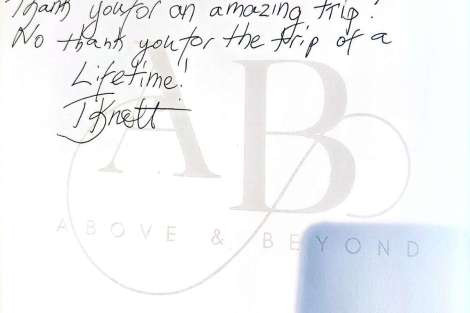 Thank you for an amazing trip!
No thank you for the trip of a
Lifetime!
J Knott
AB
ABOVE & BEYOND